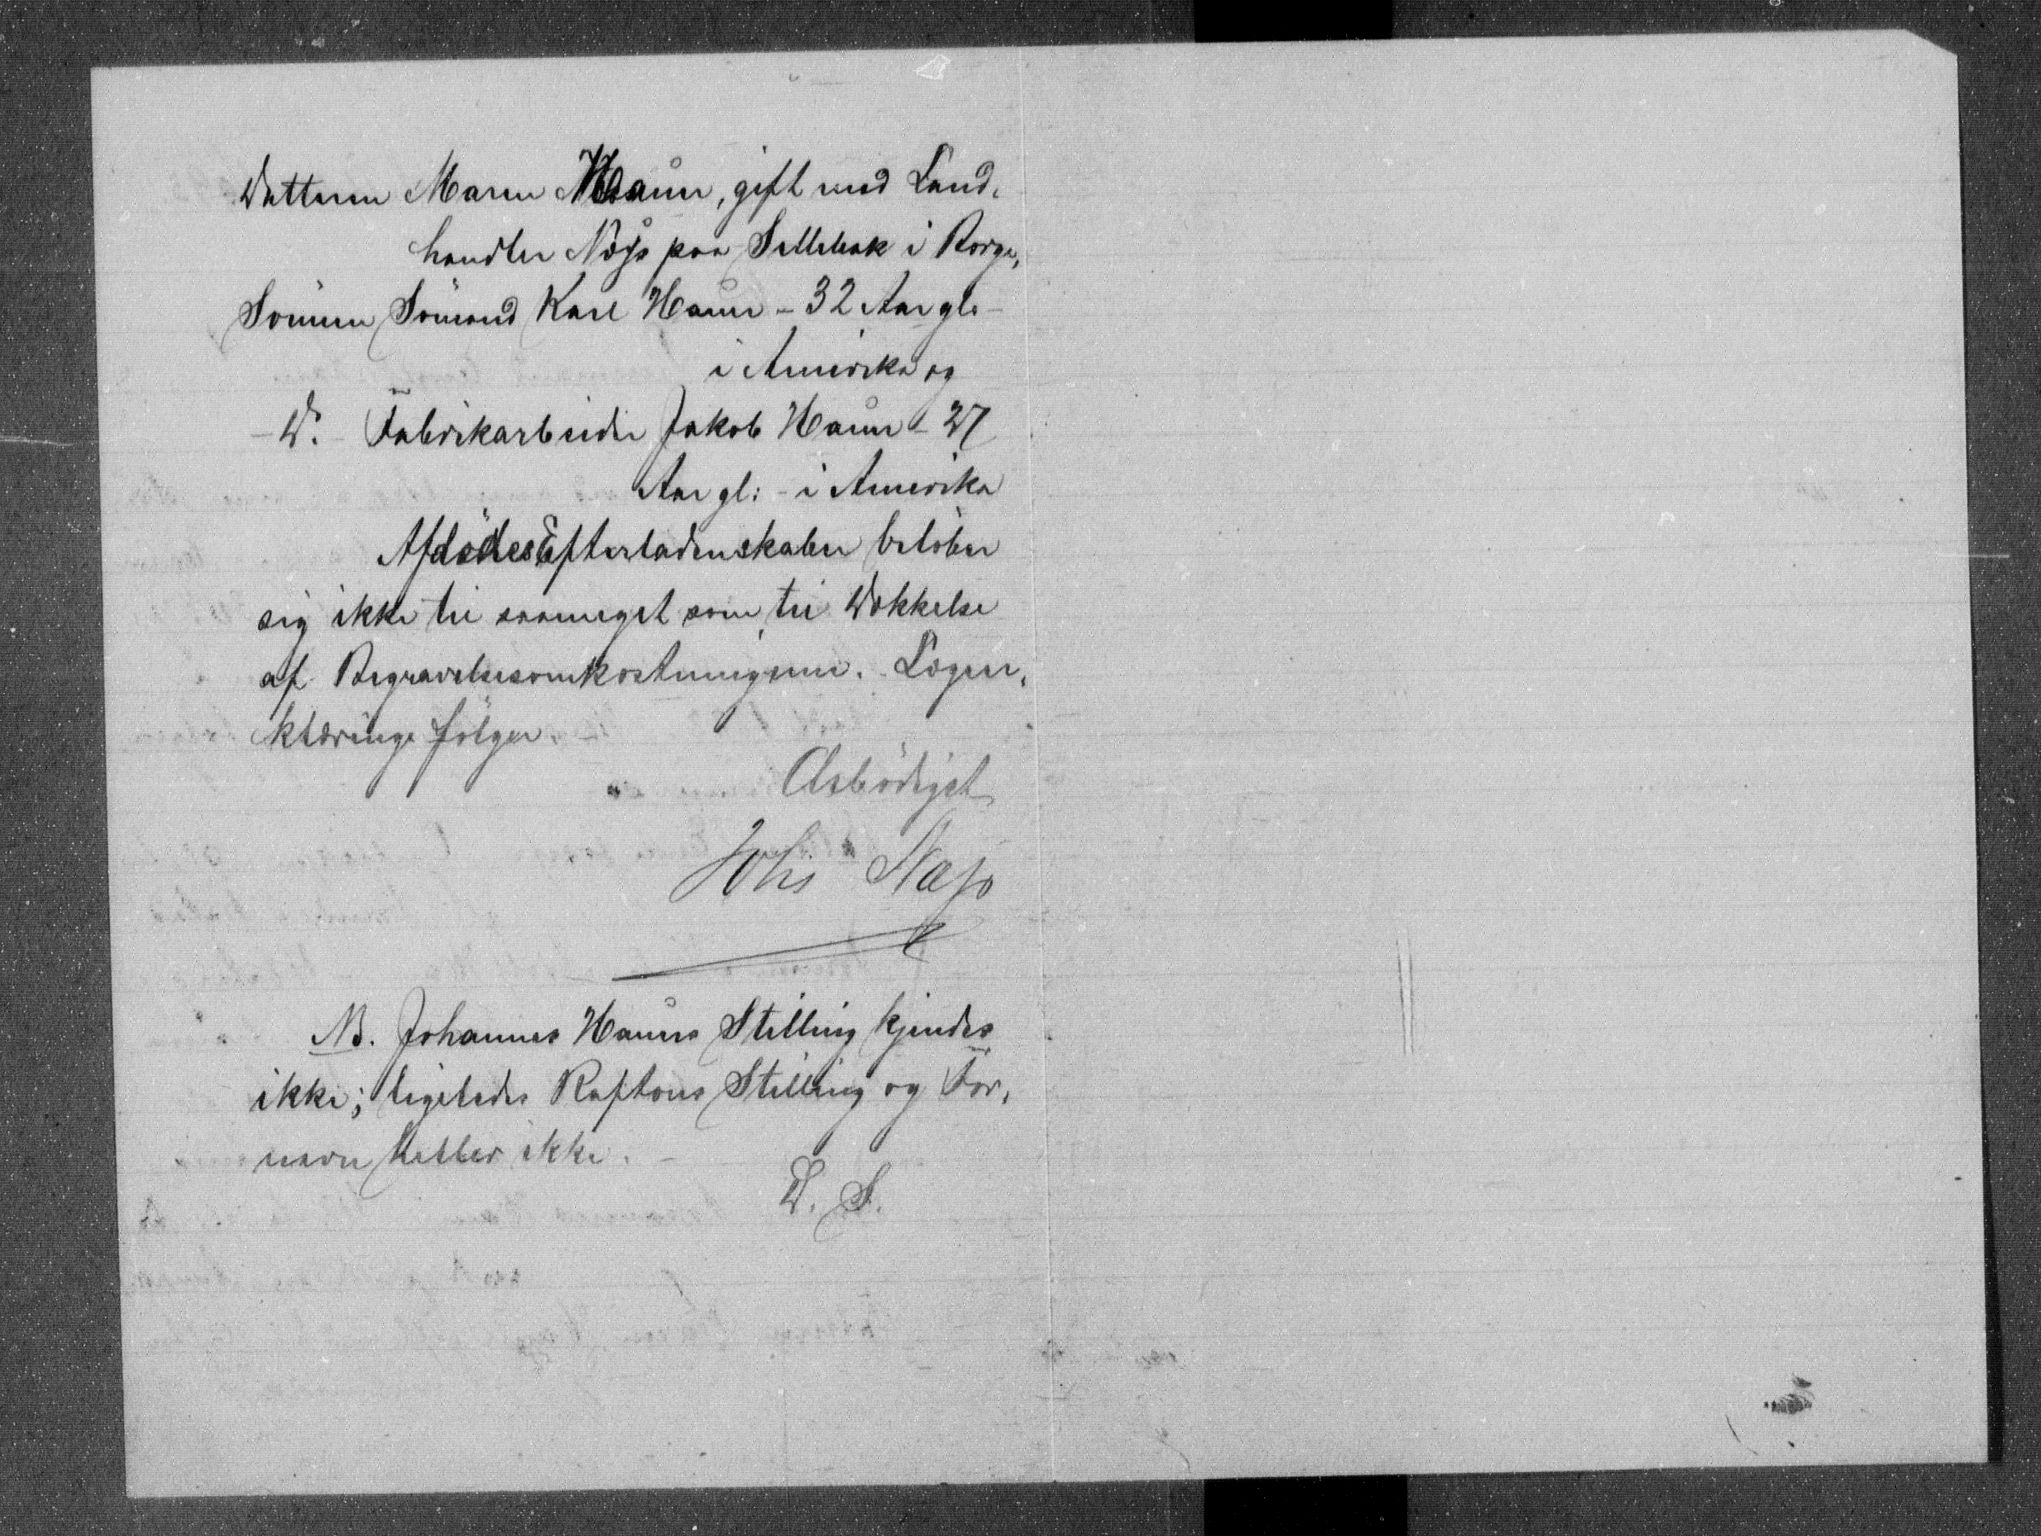 Datteren Maren Haaun, gift med Land-
handler Næss paa Sellebak i Borge,
Sönnen Sömand Karl Haun - 32 Aar gl. -
i Amerika og
- D. - Fabrikarbeider Jakob Haun - 27
Aar gl: - i Amerika
Afdødes Efterladenskaber beløber
sig ikke til saameget som til Dækkelse
af Begravelsesomkostningerne. Lægeer-
klæringe følger.
Ærbødigst
Johs Næss
NB. Johannes Hauns Stilling kjendes
ikke; ligeledes Raftons Stilling og For-
navn heller ikke. -
D. S.